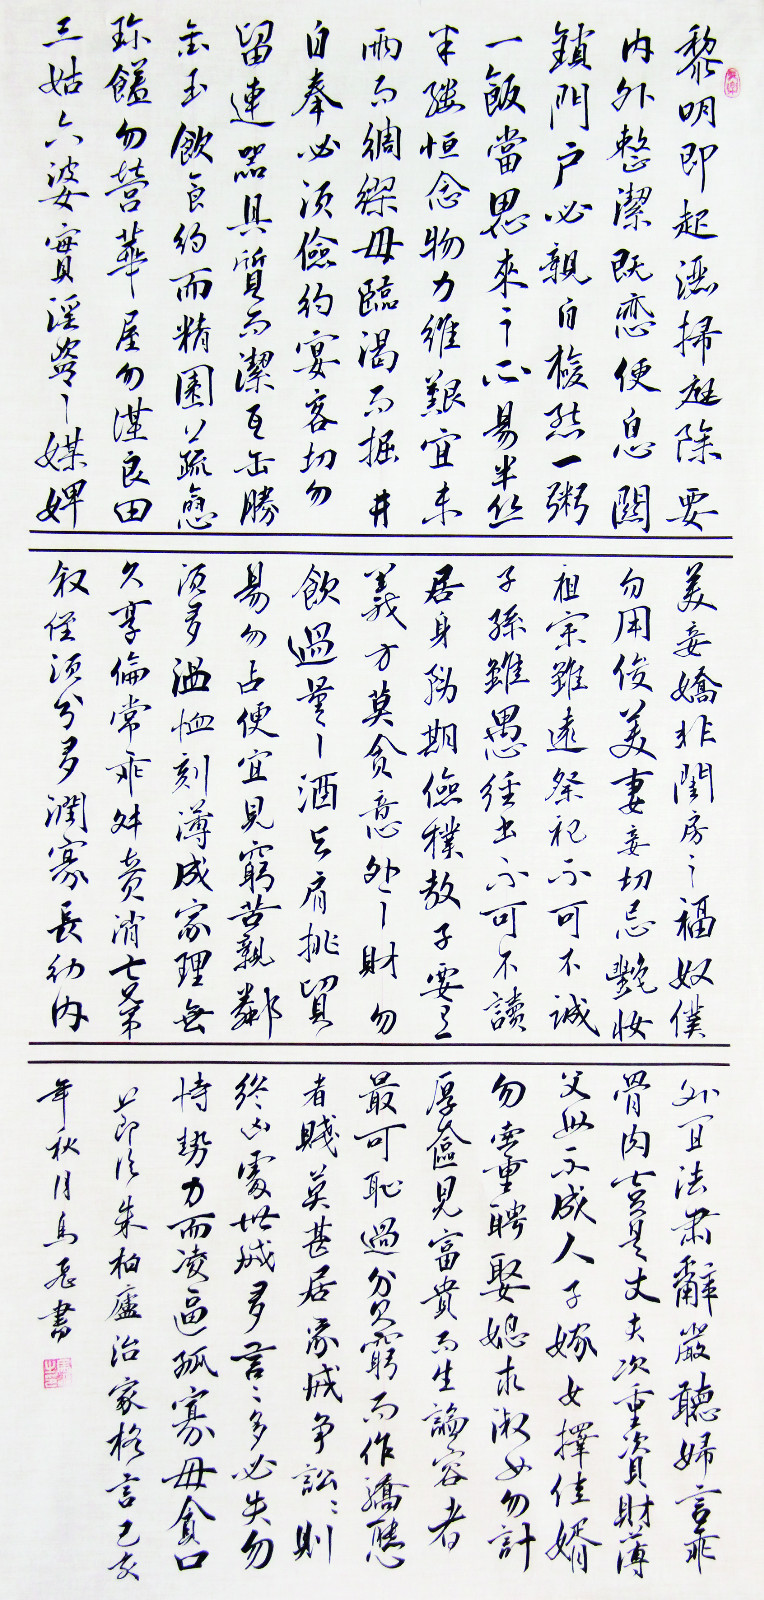 黎明即起洒掃庭除要
内外整潔既昏便息關
鎖門戶必親自檢點一粥
一飯當思來之不易半絲
半縷恒念物力維艱宜未
雨而綢繆毋臨渴而掘井
自奉必須儉約宴客切勿
留連器具質而潔瓦缶勝
金玉飲食約而精園蔬愈
珍饈勿營華屋勿謀良田
三姑六婆實淫盜之媒婢
美妾嬌非閨房之福奴僕
勿用俊美妻妾切忌艷妝
祖宗雖遠祭祀不可不誠
子孫雖愚經書不可不讀
居身務期儉樸教子要有
義方莫貪意外之財勿
飲過量之酒與肩挑貿
易勿占便宜見窮苦親鄰
須多溫恤刻薄成家理無
久享倫常乖舛立消亡兄弟
叔侄須分多潤寡長幼内
外宜法肅辭嚴聽婦言乖
骨肉豈是丈夫重資財薄
父母不成人子嫁女擇佳婿
勿索重聘娶媳求淑女勿計
厚奩見富貴而生諂容者
最可恥遇貧窮而作驕態
者賤莫甚居家戒爭訟訟則
終凶處世戒多言言多必失勿
恃勢力而凌逼孤寡毋貪口
節錄朱柏廬治家格言己亥
年秋月書